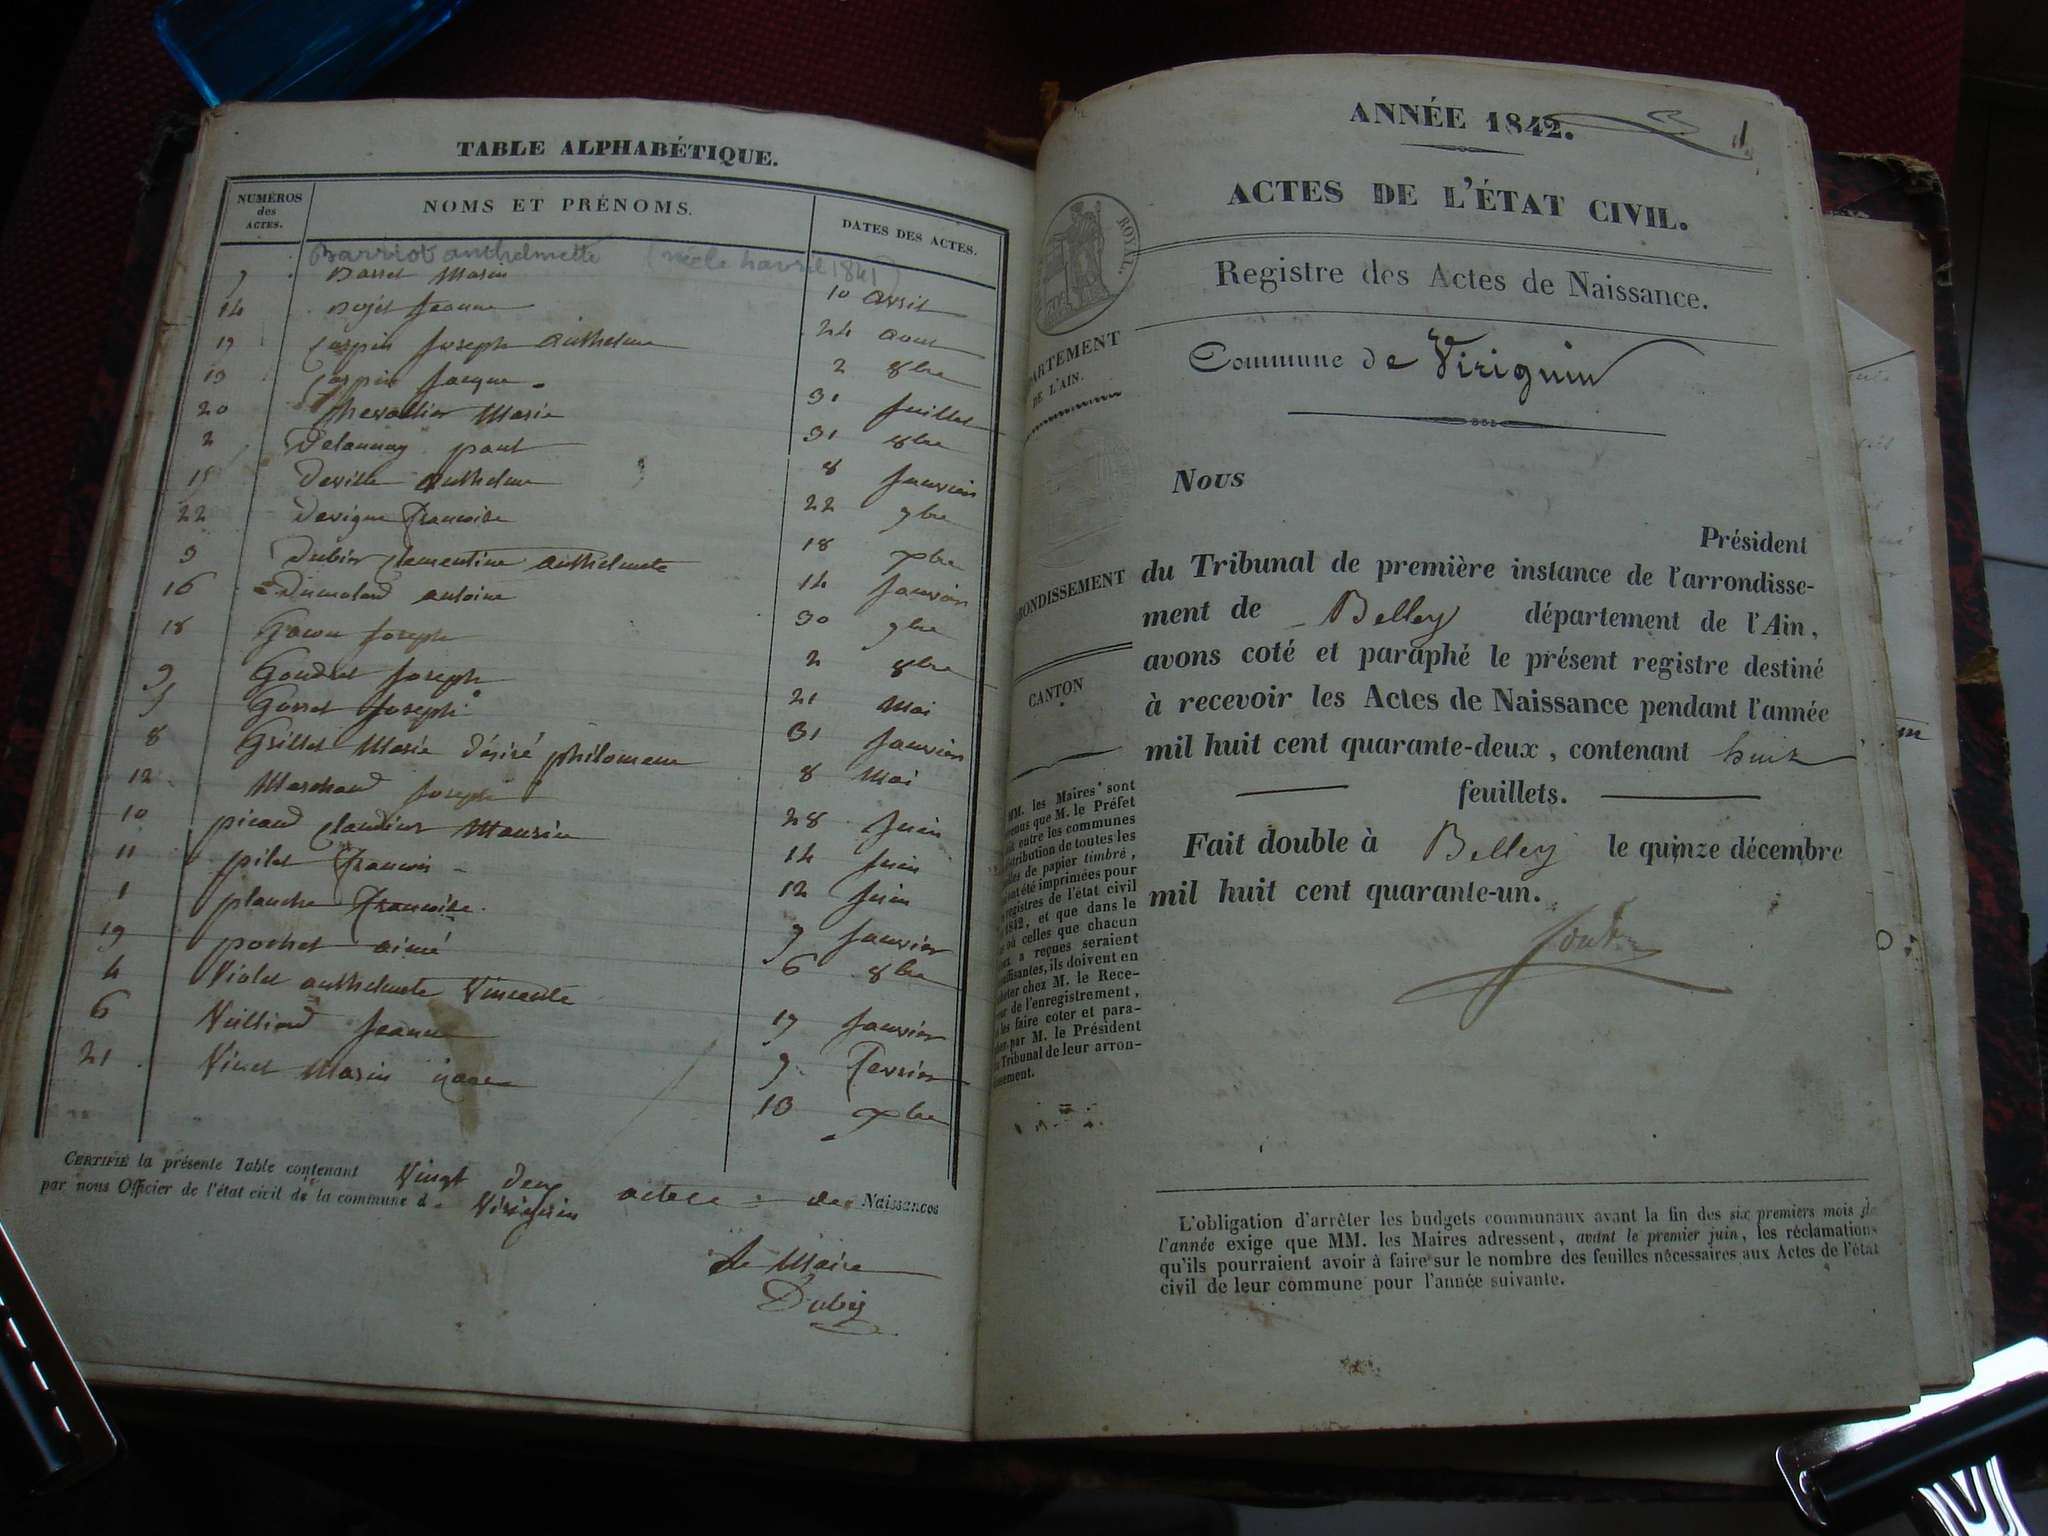 TABLE ALPHABÉTIQUE.
NUMÉROS des ACTES. NOMS ET PRÉNOMS. DATES DES ACTES.
Barriot anthelmette (née le 4 avril 1841)
7 Basset Marin 10 avril
14 Jeanne 24 aout
17 Carpin Joseph Anthelme 2 8bre
13 Carpin Jacque 31 Juillet
20 Chevallier Marie 31 8bre
2 Delaunay paul 8 Janvier
15 Deville Anthelme 22 7bre
22 Devigne Françoise 18 xbre
3 Dubier Clementine anthelmete 14 Janvier
16 Dumolard antoine 30 7bre
18 Joseph 2 8bre
9 Goudret Joseph 21 Mai
5 Gorret Joseph 31 Janvier
8 Grillet Marie désiré philomene 8 Mai
12 Marchand Joseph 28 Juin
10 picaud Claudine 14 Juin
11 pilet François 12 Juin
1 planche Françoise 7 Janvier
19 pochet aimé 6 8bre
4 Violet anthelmete Vincente 17 Janvier
6 Vuilliard Jeanne 9 Fevrier
21 Vinet Marin 10 xbre
CERTIFIÉ la présente Table contenant Vingt deux actes de Naissances
par nous Officier de l'état civil de la commune d Virignin
Le Maire
ANNÉE 1842. 1
ACTES DE L'ÉTAT CIVIL.
Registre des Actes de Naissance.
Commune de Virignin
Nous
Président
du Tribunal de première instance de l'arrondisse-
ment de Belley département de l'Ain,
avons coté et paraphé le présent registre destiné
à recevoir les Actes de Naissance pendant l'année
mil huit cent quarante-deux, contenant huit
feuillets.
Fait double à Belley le quinze décembre
mil huit cent quarante-un.
ROYAL.
PARTEMENT
DE L'AIN.
ONDISSEMENT
CANTON
MM. les Maires sont
venus que M. le Préfet
ait entre les communes
stribution de toutes les
lles de papier timbré,
ont été imprimées pour
registres de l'état civil
1842, et que dans le
as où celles que chacun
eux a reçues seraient
uffisantes, ils doivent en
heter chez M. le Rece-
eur de l'enregistrement,
les faire coter et para-
pher par M. le Président
u Tribunal de leur arron-
issement.
L'obligation d'arrêter les budgets communaux avant la fin des six premiers mois de
l'année exige que MM. les Maires adressent, avant le premier juin, les réclamations
qu'ils pourraient avoir à faire sur le nombre des feuilles nécessaires aux Actes de l'état
civil de leur commune pour l'année suivante.